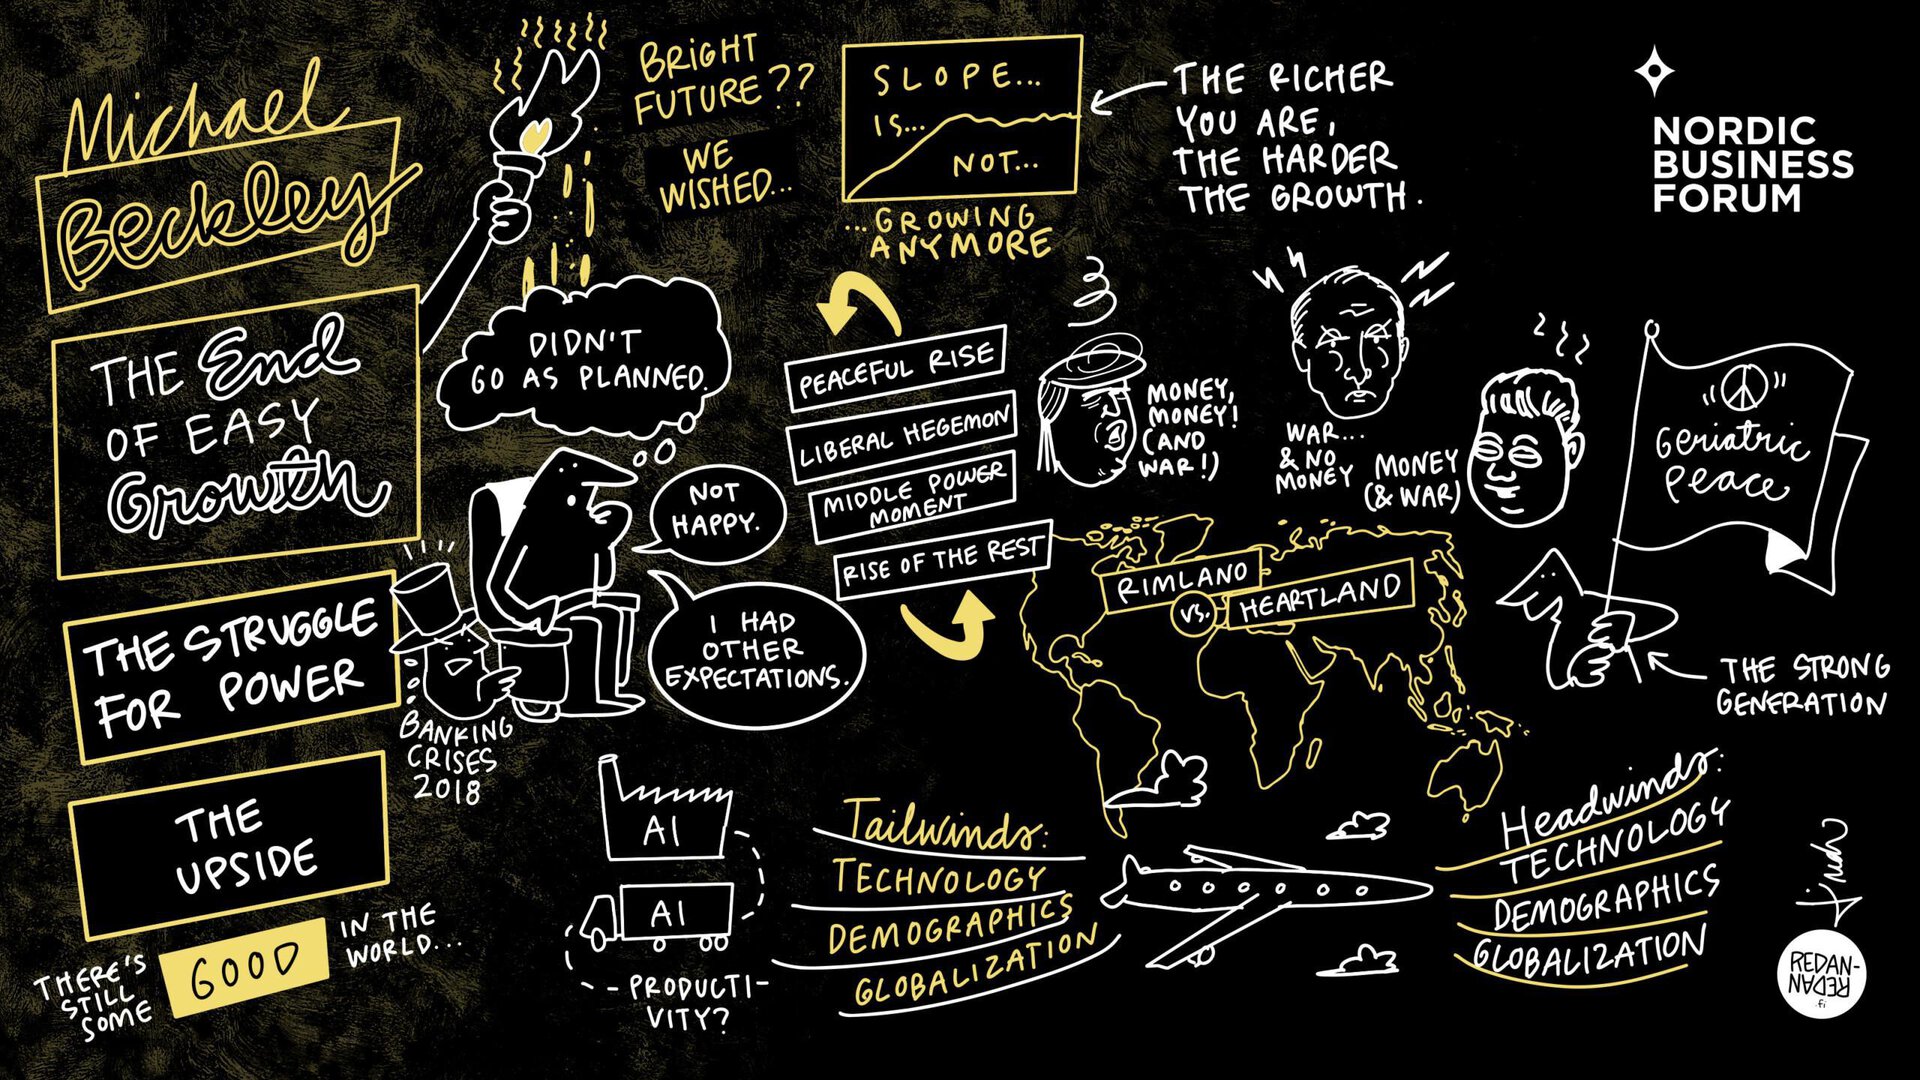 Michael
Beckley
THE End
OF EASY
Growth
THE STRUGGLE
FOR POWER
THE
UPSIDE
THERE'S
STILL
SOME
GOOD
IN THE
WORLD...
BRIGHT
FUTURE??
WE
WISHED...
DIDN'T
GO AS PLANNED.
NOT
HAPPY.
I HAD
OTHER
EXPECTATIONS.
BANKING
CRISES
2018
SLOPE...
IS...
NOT...
...GROWING
ANYMORE
THE RICHER
YOU ARE,
THE HARDER
THE GROWTH.
NORDIC
BUSINESS
FORUM
PEACEFUL RISE
LIBERAL HEGEMON
MIDDLE POWER
MOMENT
RISE OF THE REST
MONEY,
MONEY!
(AND
WAR!)
WAR...
& NO
MONEY
MONEY
(& WAR)
Geriatric
Peace
THE STRONG
GENERATION
RIMLAND
VS.
HEARTLAND
AI
AI
PRODUCTI-
VITY?
Tailwinds:
TECHNOLOGY
DEMOGRAPHICS
GLOBALIZATION
Headwinds:
TECHNOLOGY
DEMOGRAPHICS
GLOBALIZATION
REDAN-
REDAN
.fi